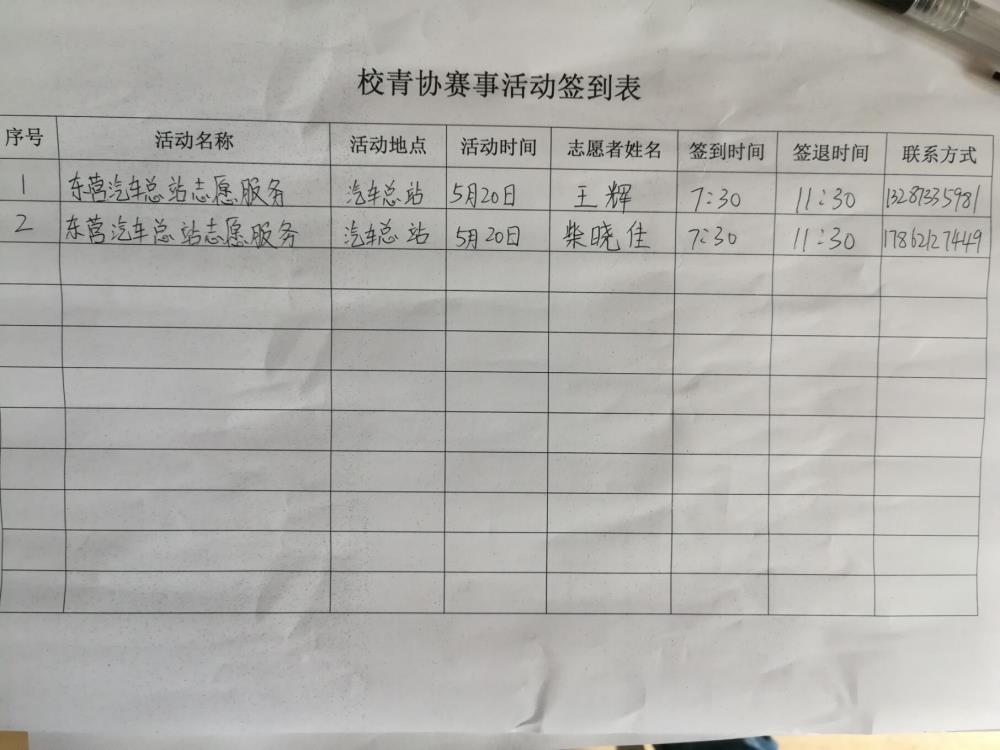 校青协赛事活动签到表
序号 活动名称 活动地点 活动时间 志愿者姓名 签到时间 签退时间 联系方式
1 东营汽车总站志愿服务 汽车总站 5月20日 王辉 7:30 11:30 13287335981
2 东营汽车总站志愿服务 汽车总站 5月20日 柴晓佳 7:30 11:30 17862127449